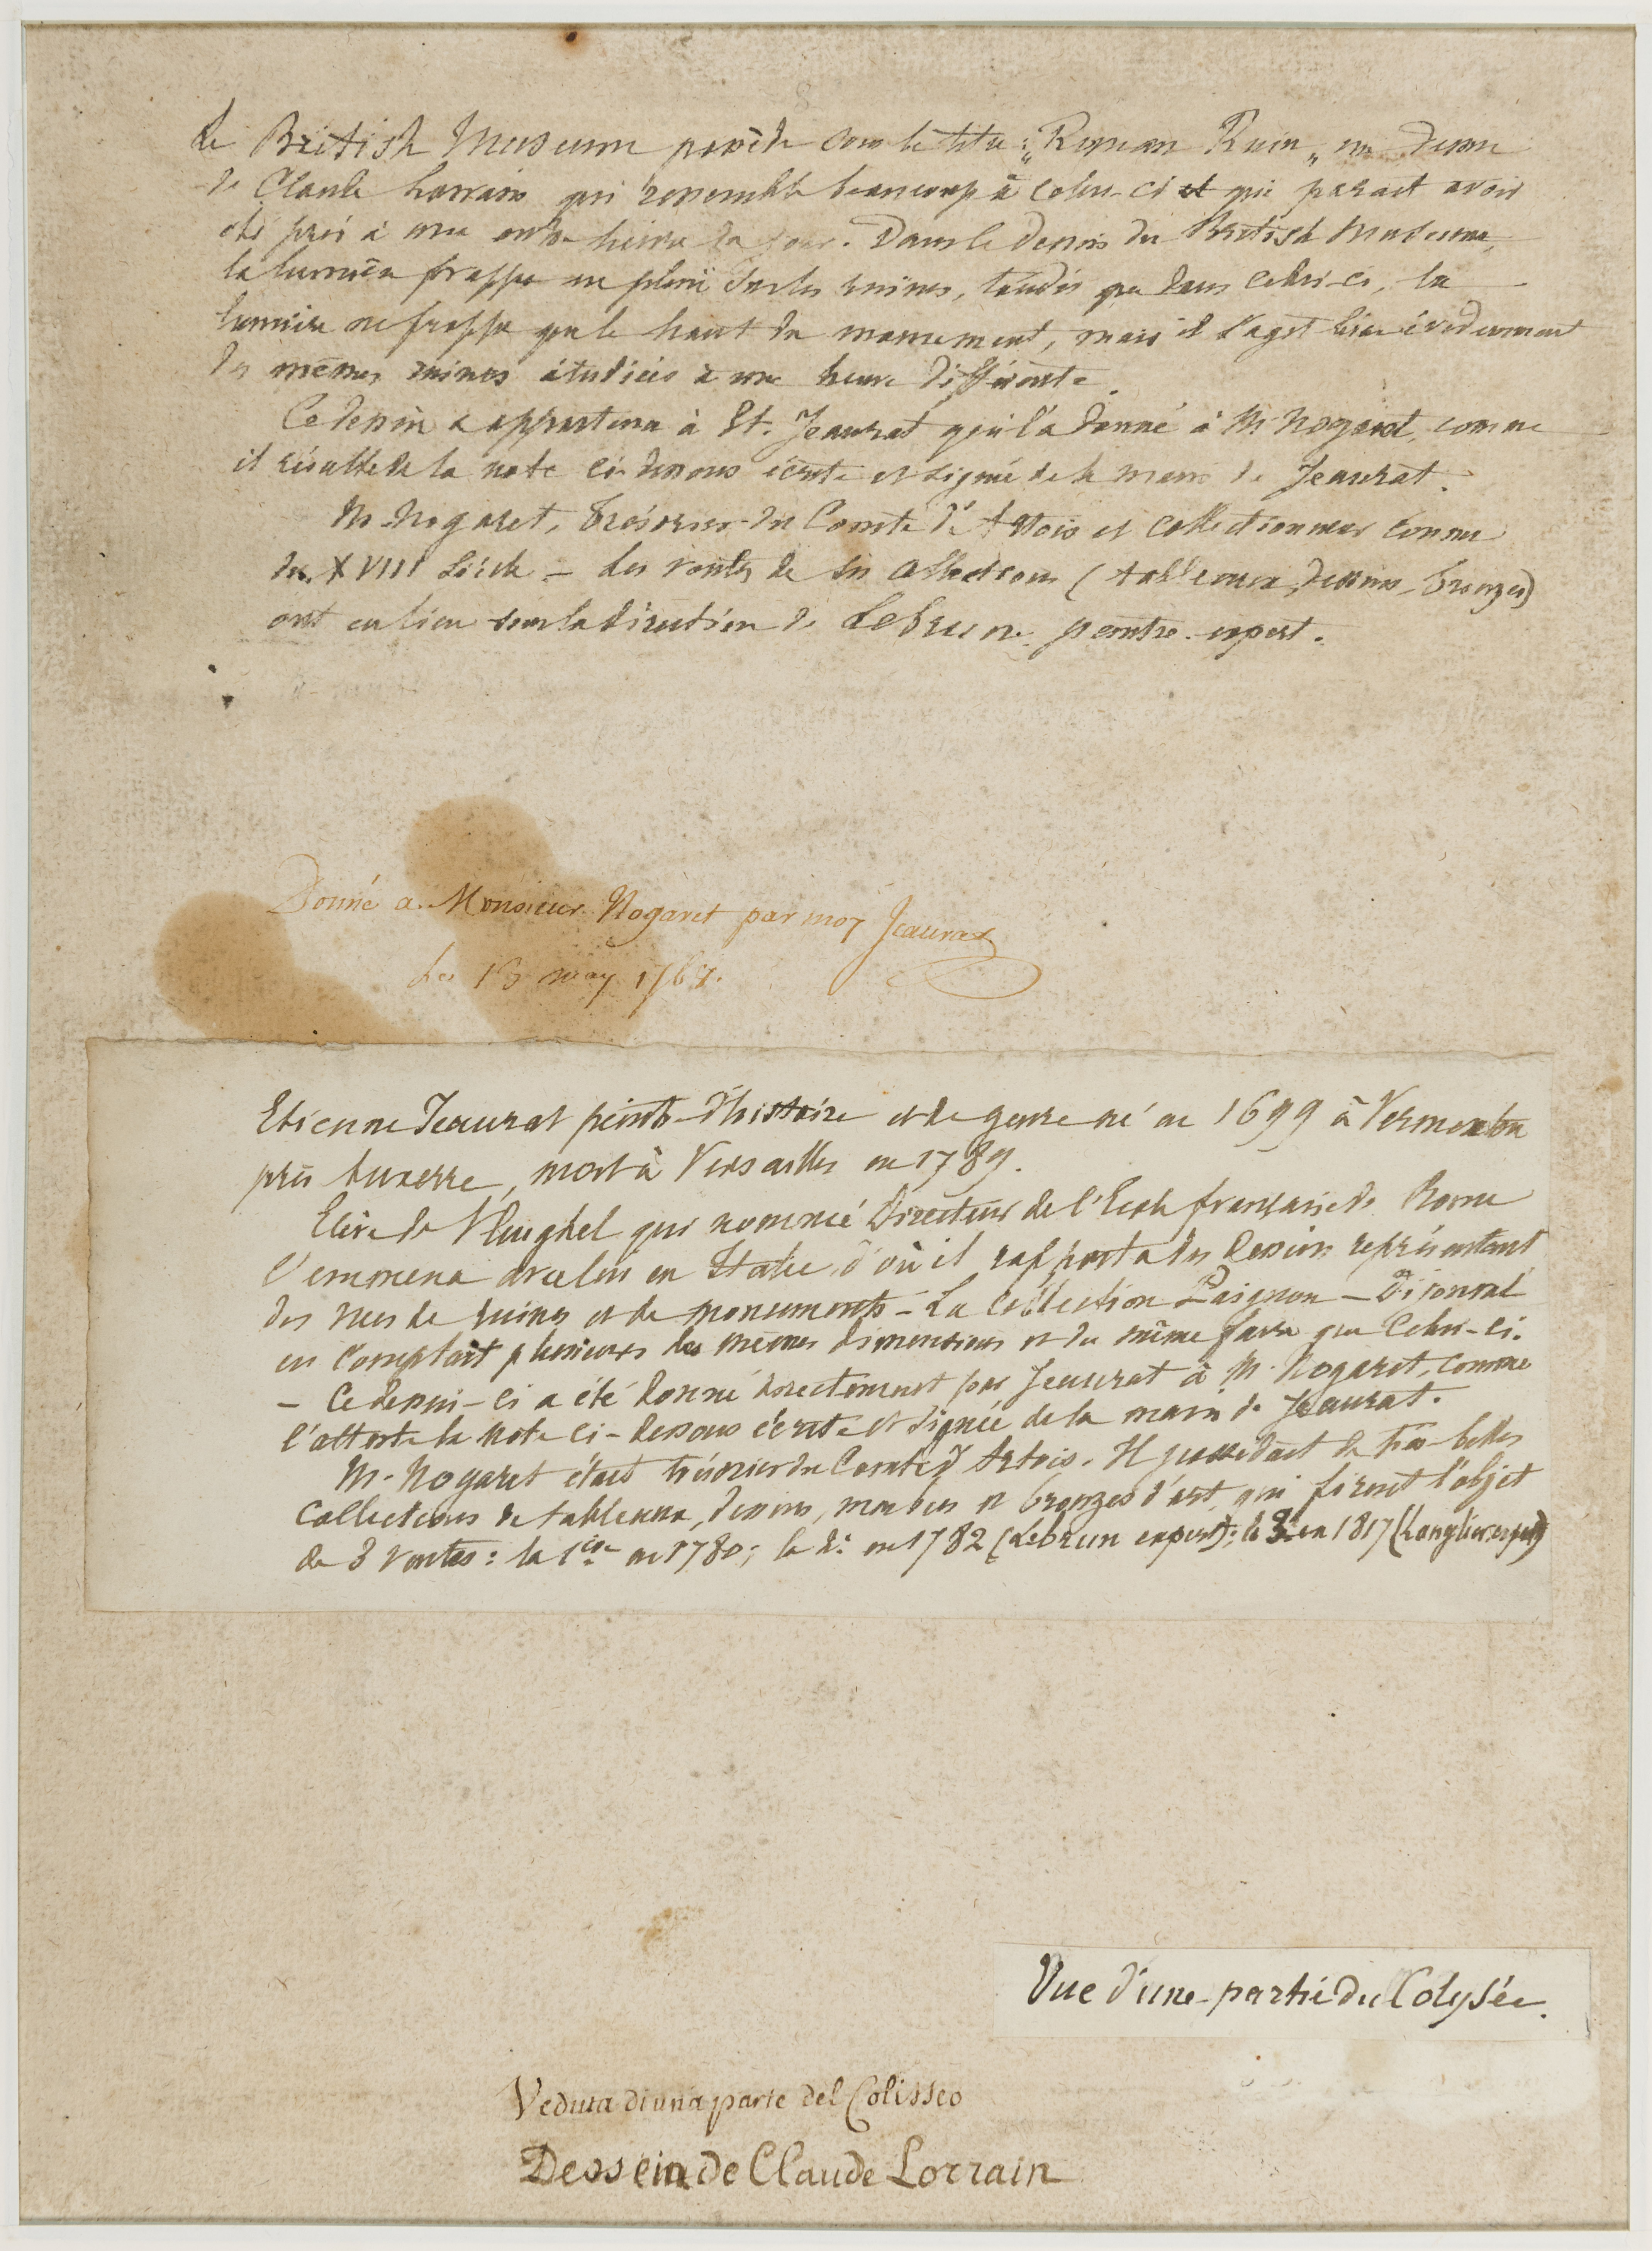 Le British Museum possède sous le titre : "Roman Ruin" un dessin
de Claude Lorrain qui ressemble beaucoup à celui-ci et qui parait avoir
été pris à une autre heure du jour. Dans le dessin du British Museum,
la lumière frappe en plein sur les ruines, tandis que dans celui-ci, la
lumière ne frappe que le haut du monument, mais il s'agit bien évidemment
des mêmes ruines étudiées à une heure différente.
Ce dessin a appartenu à Et. Jeaurat qui l'a donné à Mr Nogaret, comme
il résulte de la note ci-dessous écrite et signée de la main de Jeaurat.
Mr Nogaret, Trésorier du Comte d'Artois et collectionneur connu
du XVIII siècle - Les ventes de ses collections (tableaux, dessins, bronzes)
ont eu lieu sous la direction de Lebrun, peintre-expert.
Donné a Monsieur Nogaret par moy Jeaurat
les may 176
Etienne Jeaurat peintre d'histoire et de genre né en 1699 à Vermenton
près Auxerre, mort à Versailles en 1789.
Elève de Vlughel qui nommé Directeur de l'Ecole française de Rome
l'emmena avec lui en Italie d'où il rapporta des dessins représentant
des vues de ruines et de monuments - La collection Paignon-Dijonval
en comptait plusieurs des mêmes dimensions et du même faire que celui-ci.
- Ce dessin-ci a été donné directement par Jeaurat à M. Nogaret, comme
l'atteste la note ci-dessous écrite et signée de la main de Jeaurat.
M. Nogaret était trésorier du Comte d'Artois. Il possédait de très belles
collections de tableaux, dessins, marbres et bronzes d'art qui firent l'objet
de 3 ventes : la 1ère en 1780; la 2e en 1782 (Lebrun expert); la 3e en 1817 (Langlier expert)
Vue d'une partie du Colysée.
Veduta di una parte del Colisseo
Dessein de Claude Lorrain